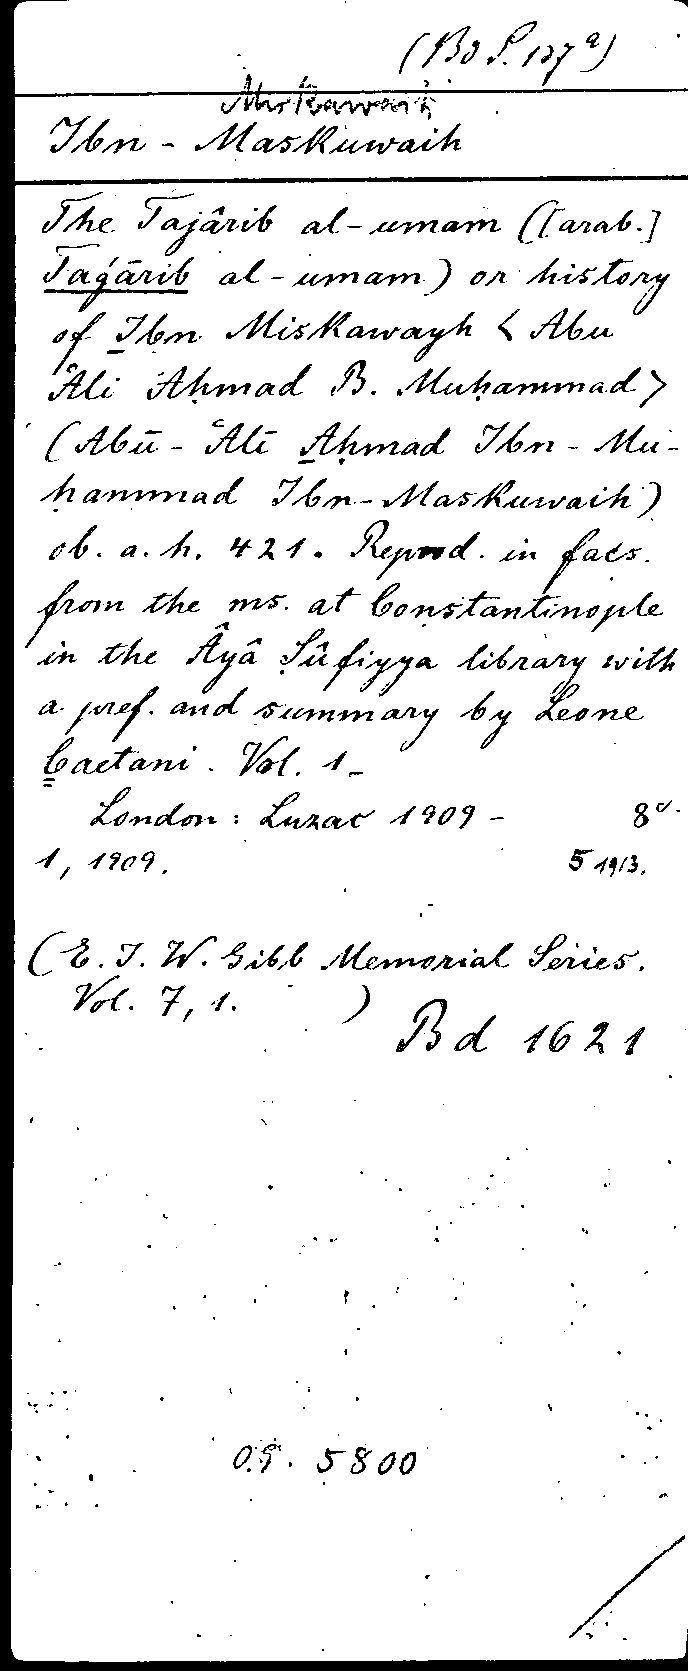 (Bd S. 137ª)
Miskawaih
Ibn - Maskuwaih
The Tajârib al-umam ([arab.]
Taǵārib al-umam) or history
of Ibn Miskawayh < Abu
ʿAli Aḥmad B. Muḥammad >
(Abū-ʿAlī Aḥmad Ibn-Mu-
ḥammad Ibn-Maskuwaih)
ob. a. h. 421. Reprod. in facs.
from the ms. at Constantinople
in the Âyâ Ṣûfiyya library with
a pref. and summary by Leone
Caetani. Vol. 1-
London: Luzac 1909 - 8°.
1, 1909. 5 1913.
(E. J. W. Gibb Memorial Series.
Vol. 7, 1. )
Bd 1621
O.S. 5800